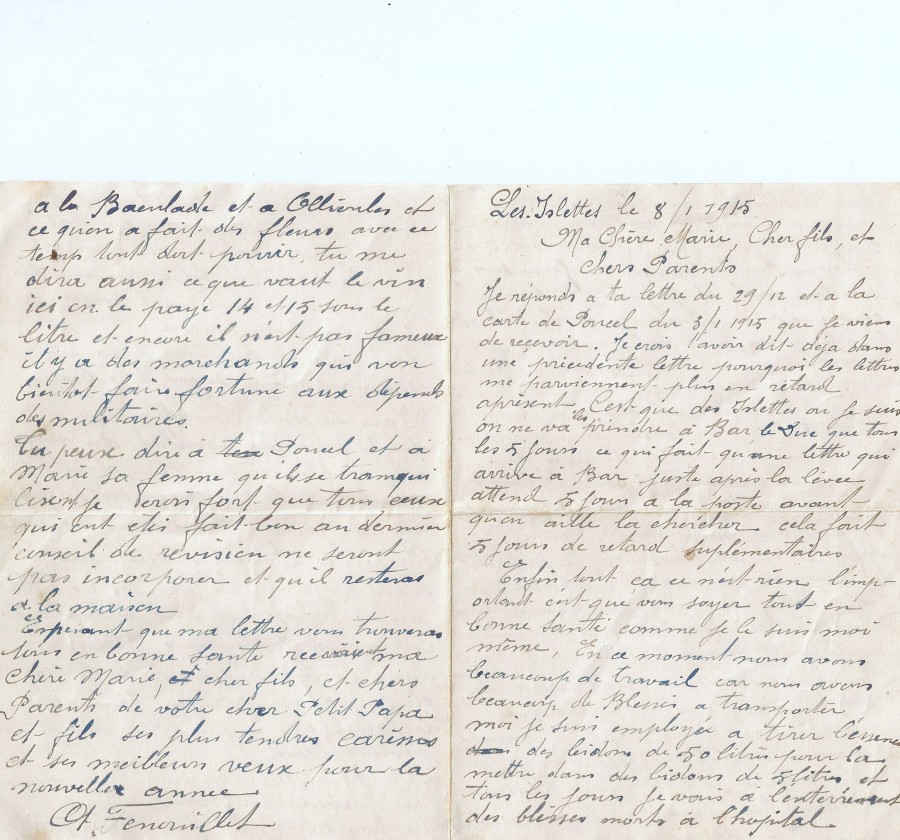 Les. Islettes le 8/1 1915
Ma Chère Marie, Cher fils, et
chers Parents
Je réponds a ta lettre du 29/12 et a la
carte de Poucel du 3/1 1915 que je viens
de recevoir. Je crois avoir dit déja dans
une précédente lettre pourquoi les lettres
me parviennent plus en retard
apresent C'est que des Islettes ou je suis
on ne va les prendre à Bar le Duc que tous
les 5 jours ce qui fait qu'une lettre qui
arrive à Bar juste après la levée
attend 5 jours a la poste avant
qu'on aille la chercher cela fait
5 jours de retard suplémentaires
Enfin tout ça ce n'est rien l'imp-
ortant c'est que vous soyer tous en
bonne santé comme je le suis moi
même, En ce moment nous avons
beaucoup de travail car nous avons
beaucoup de Blessés a transporter
moi je suis employée a tirer l'essence
des bidons de 50 litres pour la
mettre dans des bidons de 5 litres et
tous les jours je vais à l'enterrement
des blessés morts à l'hopital
a la et a Ollioules et
ce qu'on a fait des fleurs avec ce
temps tout doit pourrir, tu me
dira aussi ce que vaut le vin
ici on le paye 14 et 15 sous le
litre et encore il n'est pas fameux
il y a des marchands qui von
bientot faire fortune aux dépends
des militaires.
Tu peux dire à Poucel et à
Marie sa femme qu'ils se tranqui
lisent je crois fort que tous ceux
qui ont etés fait bon au dernier
conseil de revision ne seront
pas incorporer et qu'il resteras
a la maison
Esperant que ma lettre vous trouveras
tous en bonne sante recevant ma
Chère Marie, et cher fils, et chers
Parents de votre cher Petit Papa
et fils ses plus tendres carèsses
et ses meilleurs veux pour la
nouvelle année
A Fenouillet